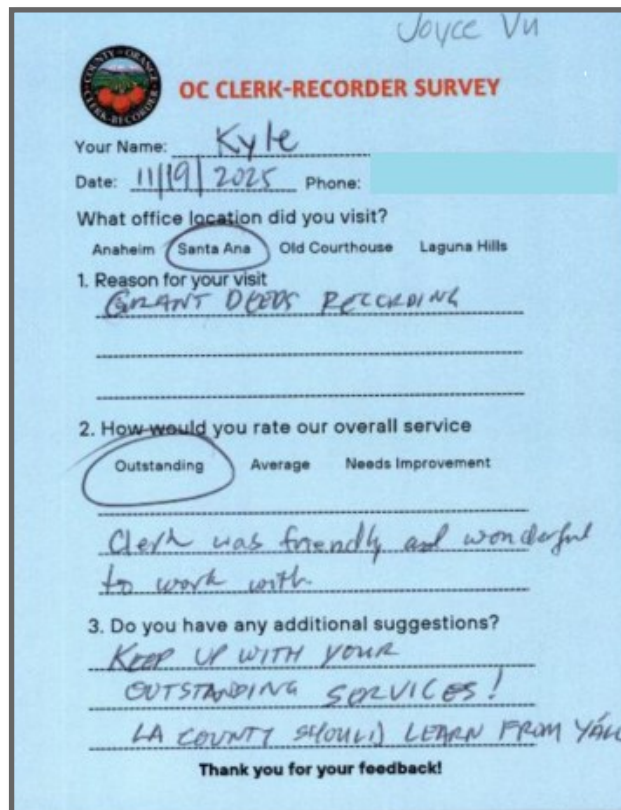 Joyce Vu
COUNTY OF ORANGE
CLERK-RECORDER
OC CLERK-RECORDER SURVEY
Your Name: Kyle
Date: 11/19/2025 Phone:
What office location did you visit?
Anaheim Santa Ana Old Courthouse Laguna Hills
1. Reason for your visit
GRANT DEEDS RECORDING
2. How would you rate our overall service
Outstanding Average Needs Improvement
Clerk was friendly and wonderful
to work with
3. Do you have any additional suggestions?
KEEP UP WITH YOUR
OUTSTANDING SERVICES!
LA COUNTY SHOULD LEARN FROM YÁLL
Thank you for your feedback!